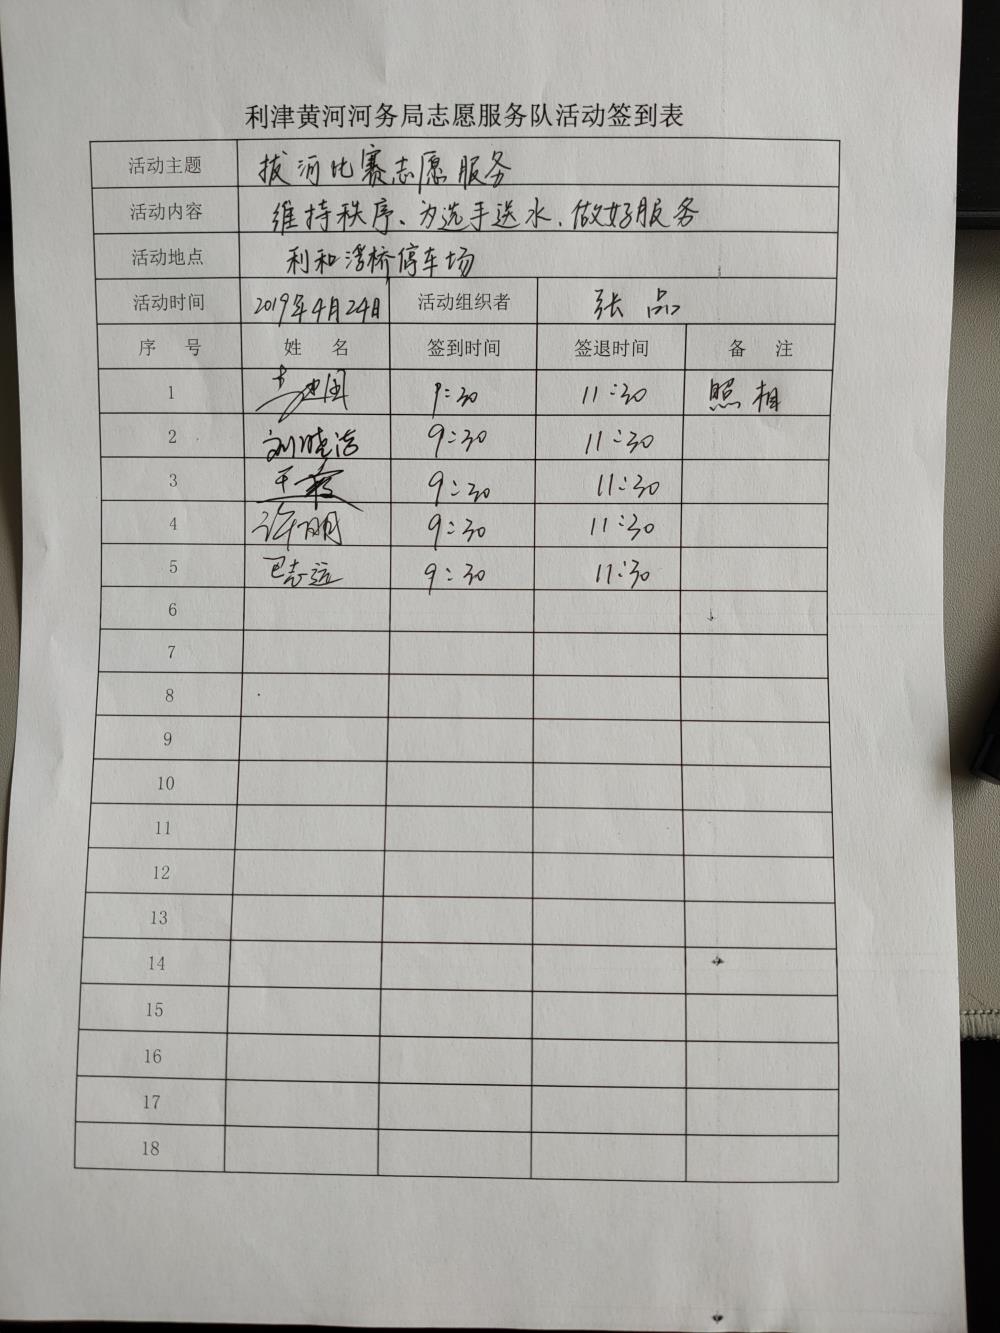 利津黄河河务局志愿服务队活动签到表
活动主题 拔河比赛志愿服务
活动内容 维持秩序、为选手送水、做好服务
活动地点 利和浮桥停车场
活动时间 2019年4月24日 活动组织者 张品
序号 姓名 签到时间 签退时间 备注
1 9:30 11:30 照相
2 刘晓洁 9:30 11:30
3 9:30 11:30
4 许明 9:30 11:30
5 巴志远 9:30 11:30
6
7
8
9
10
11
12
13
14
15
16
17
18